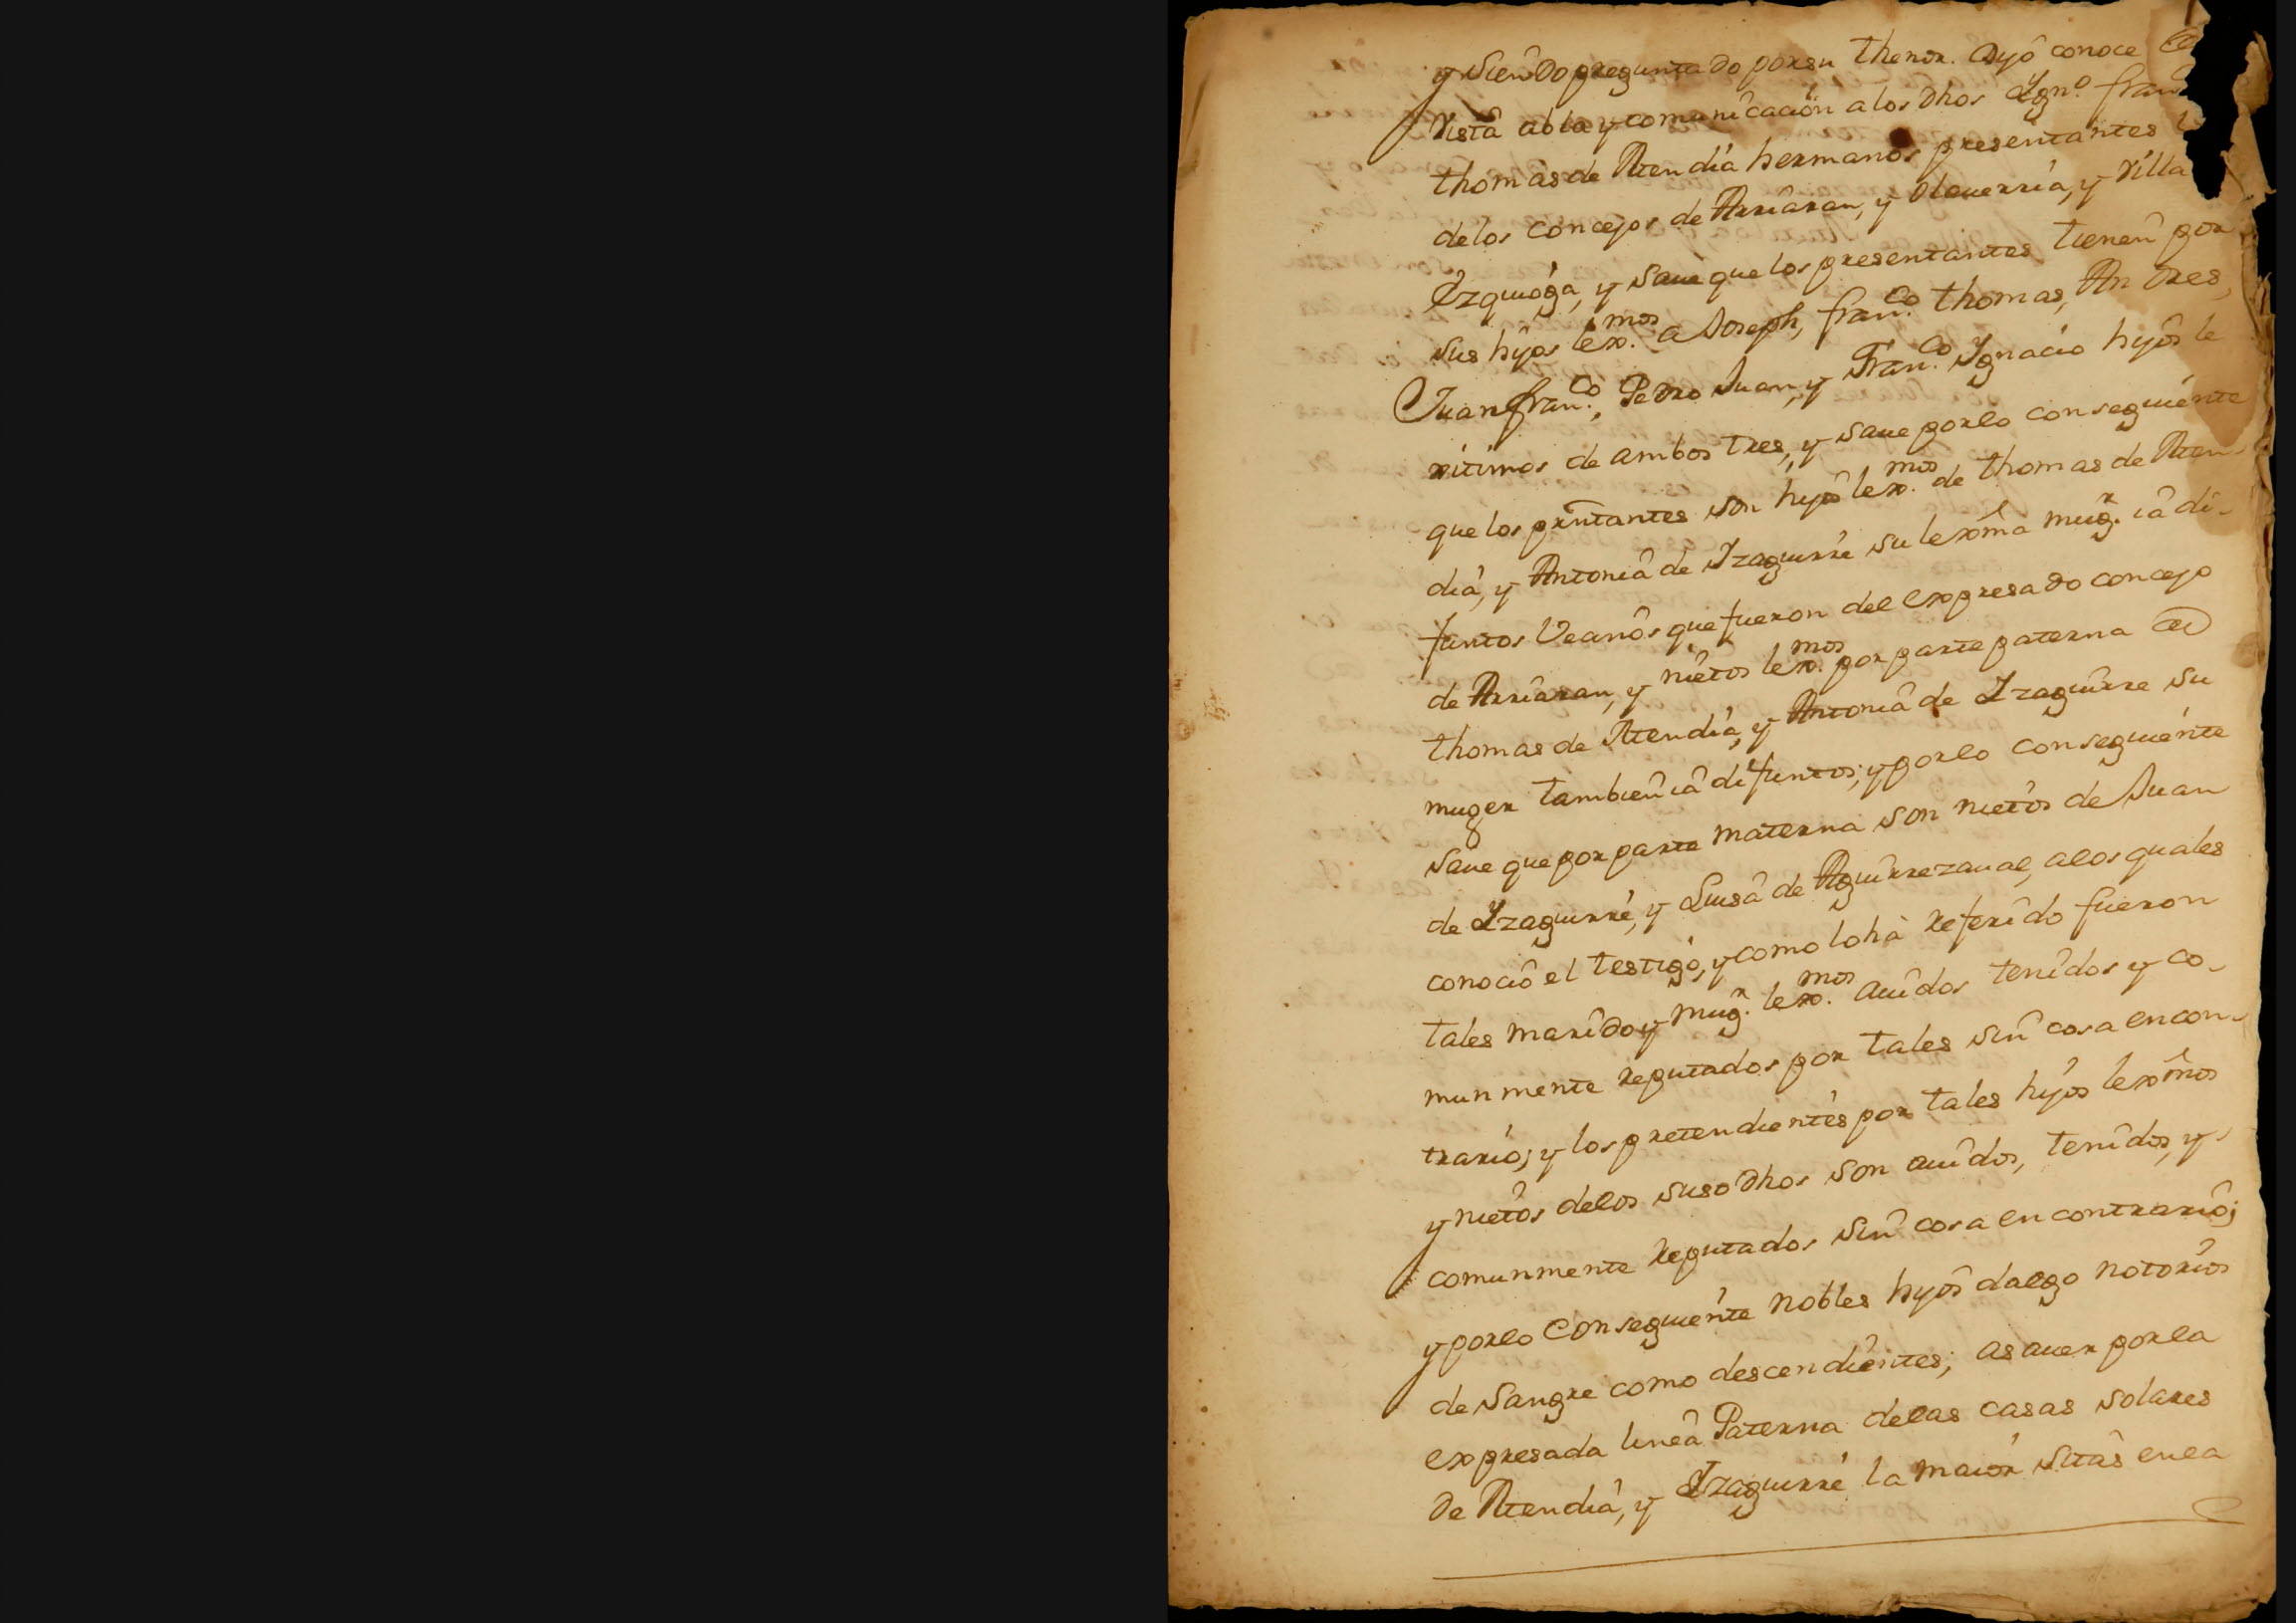 y siendo preguntado por su thenor. Dijo conoce de
vista abla y comunicación a los dhos Ygnº. fran
thomas de Atendia hermanos presentantes
de los concejos de Arriaran, y Olauerria, y villa
Ezquioga, y saue que los presentantes tienen por
sus hijos lexmos. a Joseph, franco. thomas, Andres,
Juan franco., Pedro Juan, y Franco. Ygnacio hijos le
xitimos de ambos tres, y saue por lo conseguiente
que los prntantes son hijos lexmos. de thomas de Aten-
dia, y Antonia de Izaguirre su lexma mugr. ia di-
funtos Veanos que fueron del expresado concejo
de Arriaran, y nietos lexmos. por parte paterna de
thomas de Atendia, y Antonia de Izaguirre su
muger tambien ia difuntos; y por lo conseguiente
saue que por parte materna son nietos de Juan
de Izaguirre, y Luisa de Aguirrezaual, a los quales
conocio el testigo, y como lo hà referido fueron
tales marido y mugr. lexmos. auidos tenidos y co-
munmente reputados por tales sin cosa en con-
trario; y los pretendientes por tales hijos lexmos
y nietos de los susodhos son auidos, tenidos, y
comunmente reputados sin cosa en contrario;
y por lo conseguiente nobles hijos dalgo notorios
de sangre como descendientes; asauer por la
expresada linea Paterna de las casas solares
de Atendia, y Izaguirre la maior sitas en la